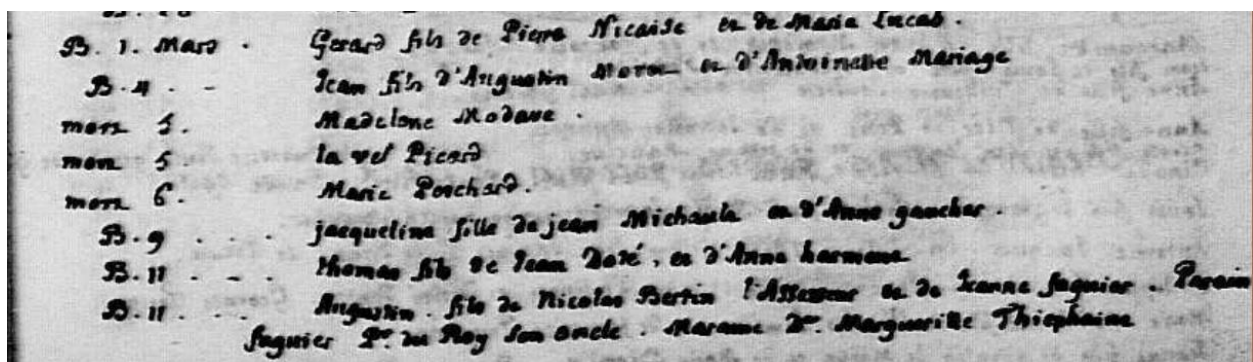 B. 1. Mars . Gerard fils de Pierre Nicaise et de Maria Lucas .
B. 4 . - Jean fils d'Augustin et d'Antoinette Mariage
mort 5. Madelone Modave .
mort 5 la vef Picard
mort 6. Marie Porchard .
B. 9 . . . jacqueline fille de jean Michault et d'Anne gaucher .
B. 11 . - . thomas fils de Jean Doté, et d'Anne harmene
B. 11 . . . Augustin . fils de Nicolas Bertin l'Assesseur et de Jeanne faguier . Parain
faguier Pr. du Roy son oncle . Maraine De. Margueritte Thiephaine